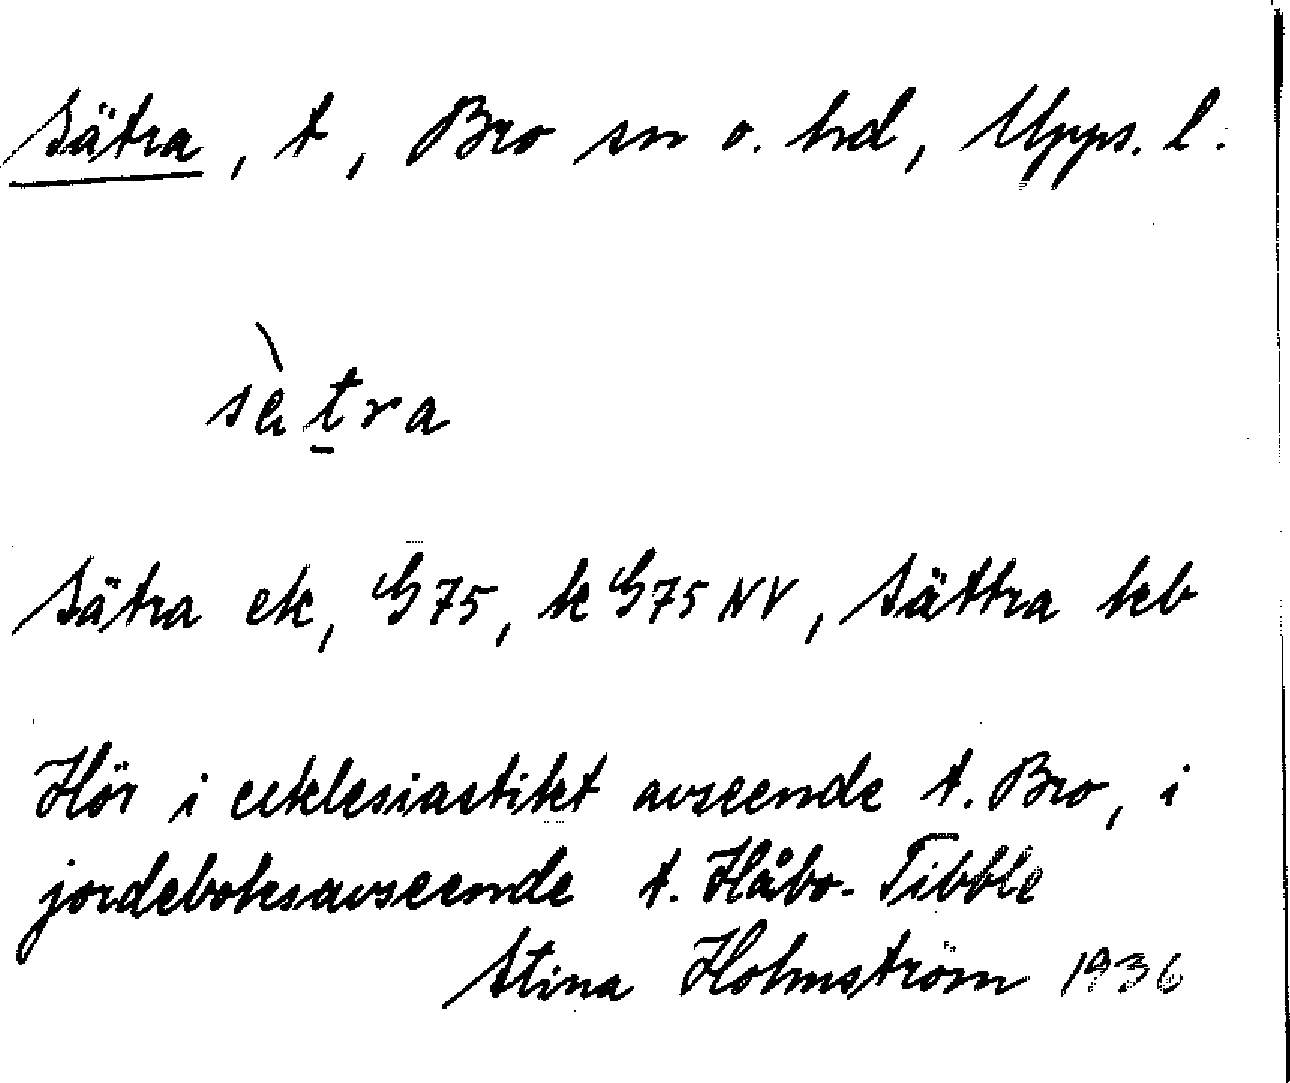 Sätra, t, Bro sn o. hd, Upps. l.
sètra
Sätra ek, G75, k G75 NV, Sättra kb
Hör i ecklesiastikt avseende t. Bro, i
jordeboksavseende t. Håbo-Tibble
Stina Holmström 1936